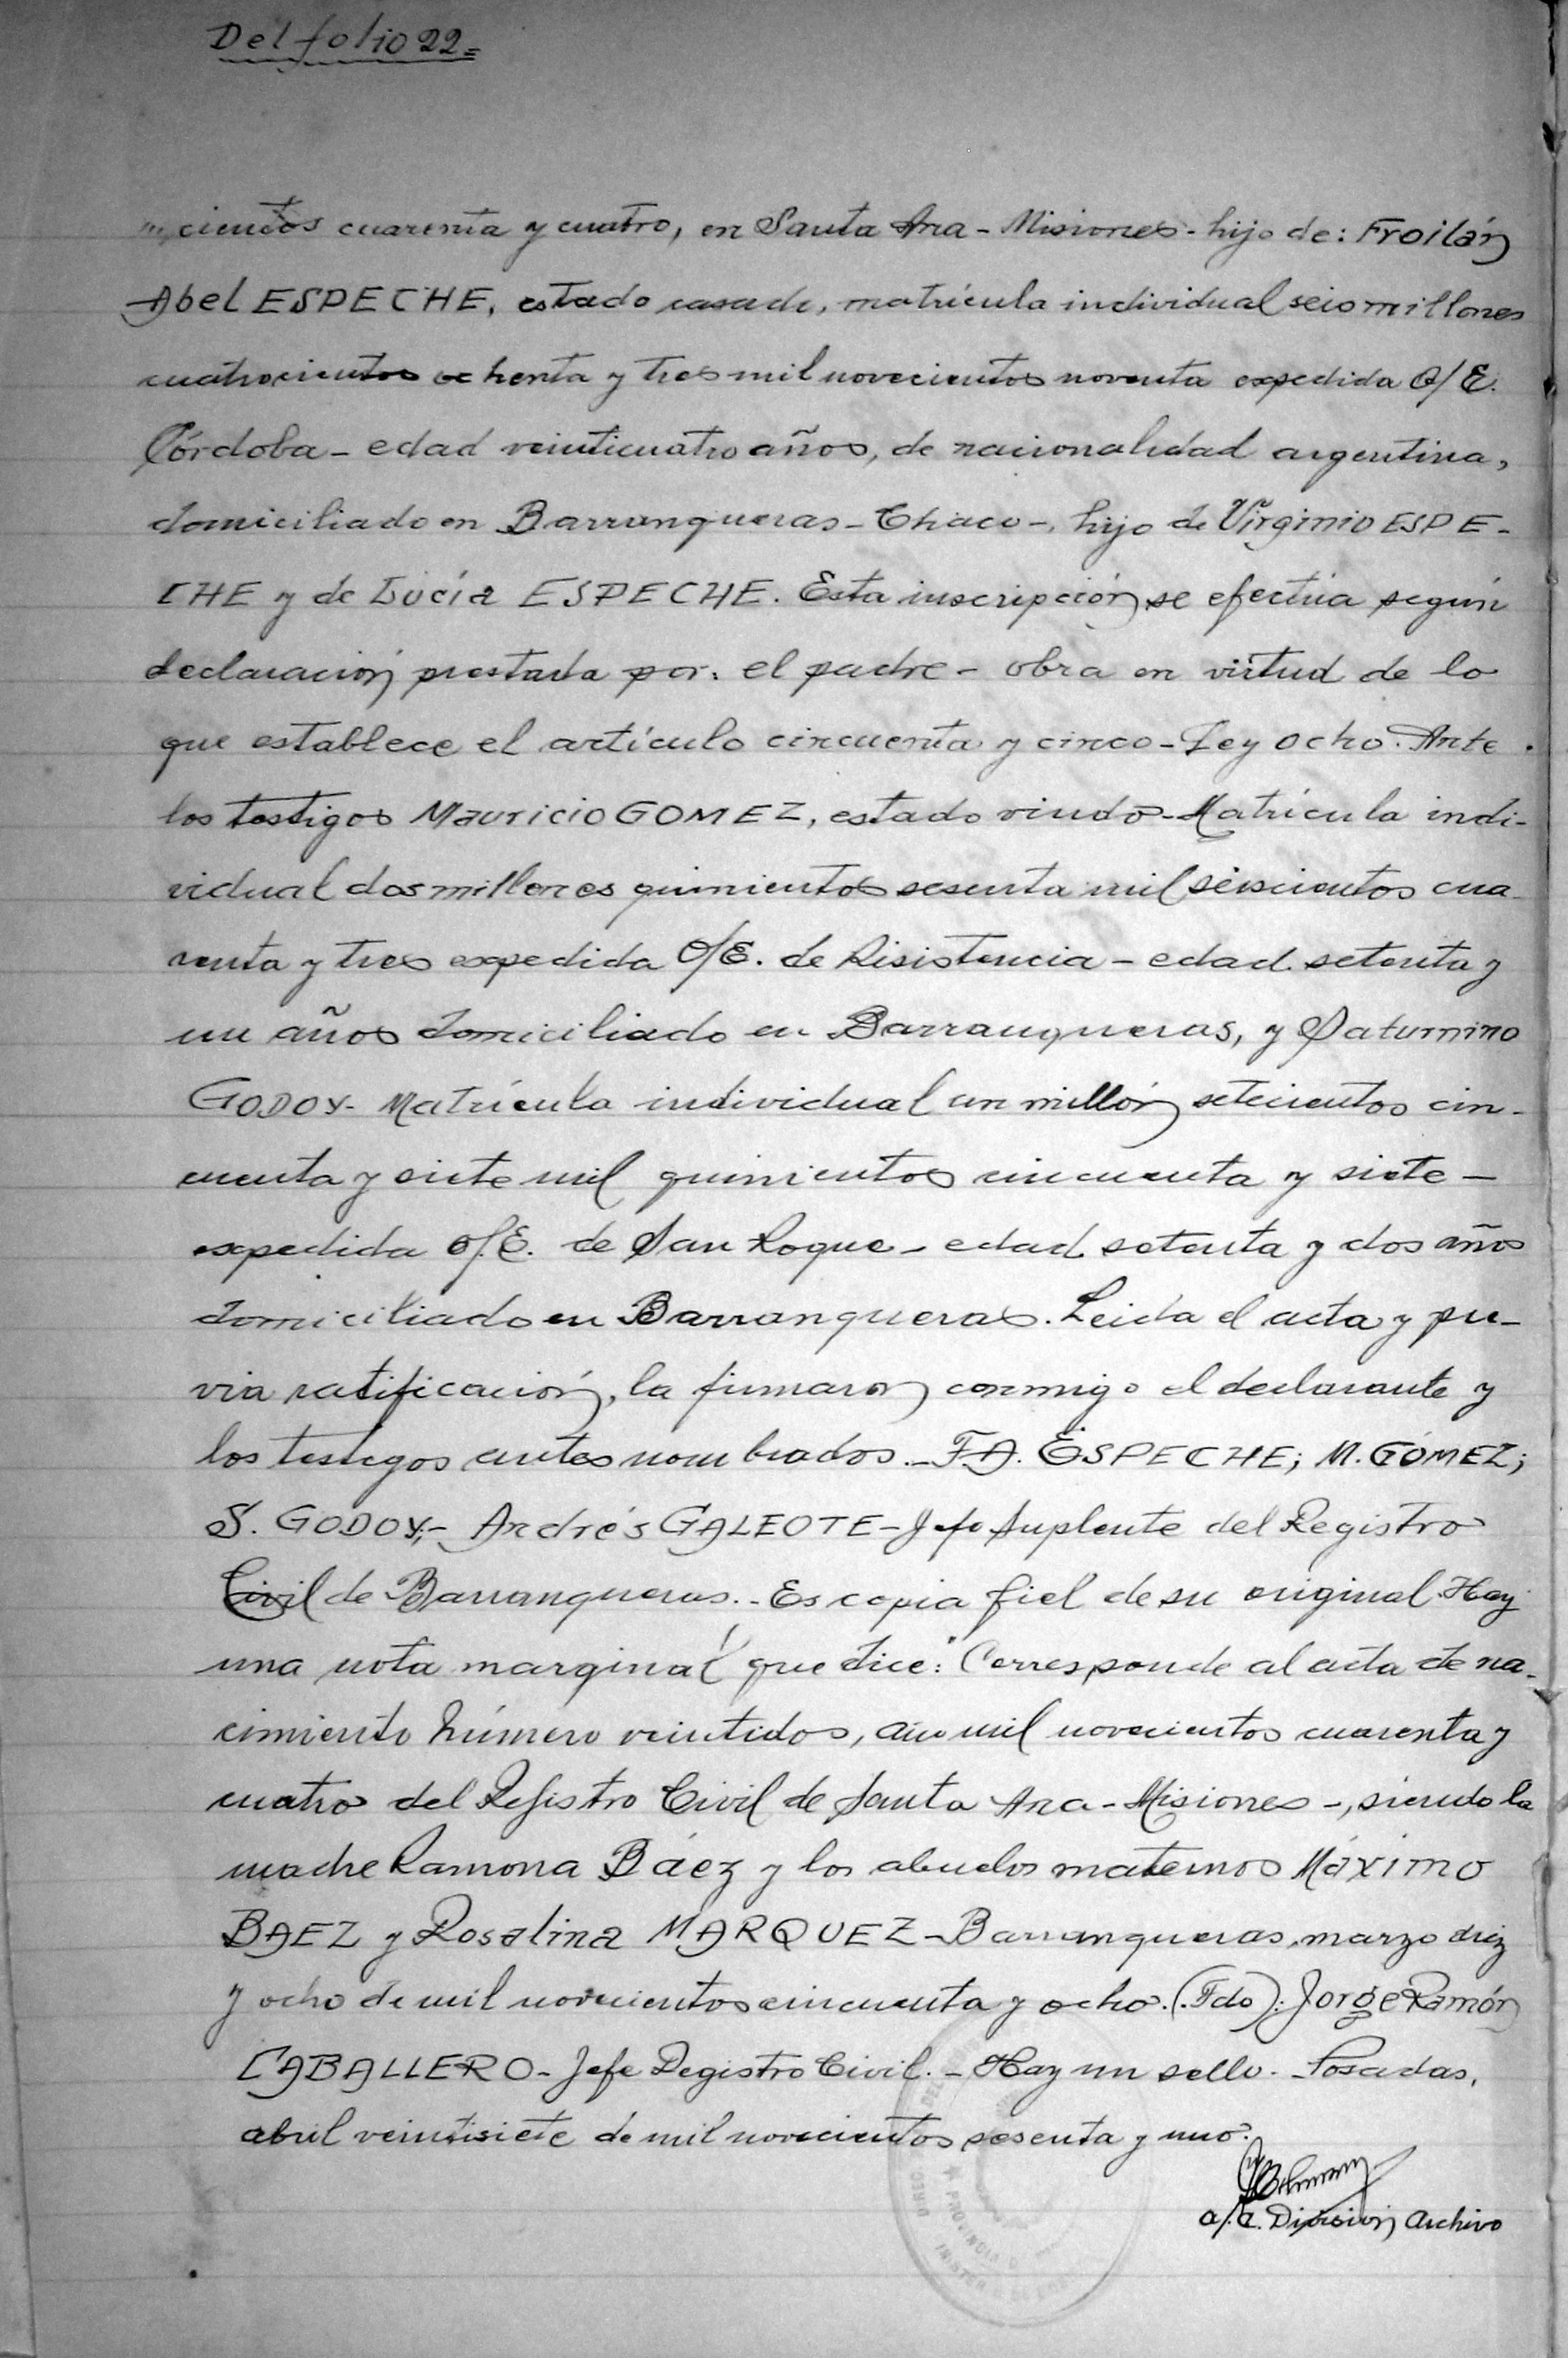 Del folio 22=
cientos cuarenta y cuatro, en Santa Ana - Misiones - hijo de: Froilán
Abel ESPECHE, estado casado, matrícula individual seis millones
cuatrocientos ochenta y tres mil novecientos noventa expedida O/E.
Córdoba - edad veinticuatro años, de nacionalidad argentina,
domiciliado en Barranqueras - Chaco -, hijo de Virginio ESPE-
CHE y de Lucía ESPECHE. Esta inscripción se efectúa según
declaración prestada por: el padre - obra en virtud de lo
que establece el artículo cincuenta y cinco - Ley ocho. Ante
los testigos Mauricio GOMEZ, estado viudo - Matrícula indi-
vidual dos millones quinientos sesenta mil seiscientos cua-
renta y tres expedida O/E. de Resistencia - edad setenta y
un años domiciliado en Barranqueras, y Saturnino
GODOY - Matrícula individual un millón setecientos cin-
cuenta y siete mil quinientos cincuenta y siete -
expedida O/E. de San Roque - edad setenta y dos años
domiciliado en Barranqueras. Leida el acta y pre-
via ratificación, la firmaron conmigo el declarante y
los testigos antes nombrados. - F.A. ESPECHE; M. GÓMEZ;
S. GODOY; - Andrés GALEOTE - Jefe Suplente del Registro
Civil de Barranqueras. - Es copia fiel de su original. Hay
una nota marginal que dice: "Corresponde al acta de na-
cimiento número veintidos, año mil novecientos cuarenta y
cuatro del Registro Civil de Santa Ana - Misiones -, siendo la
madre Ramona Báez y los abuelos maternos Máximo
BAEZ y Rosalina MARQUEZ - Barranqueras, marzo diez
y ocho de mil novecientos cincuenta y ocho. (Fdo): Jorge Ramón
CABALLERO - Jefe Registro Civil. - Hay un sello. - Posadas,
abril veintisiete de mil novecientos sesenta y uno.
a/c. División Archivo
PROVINCIA D